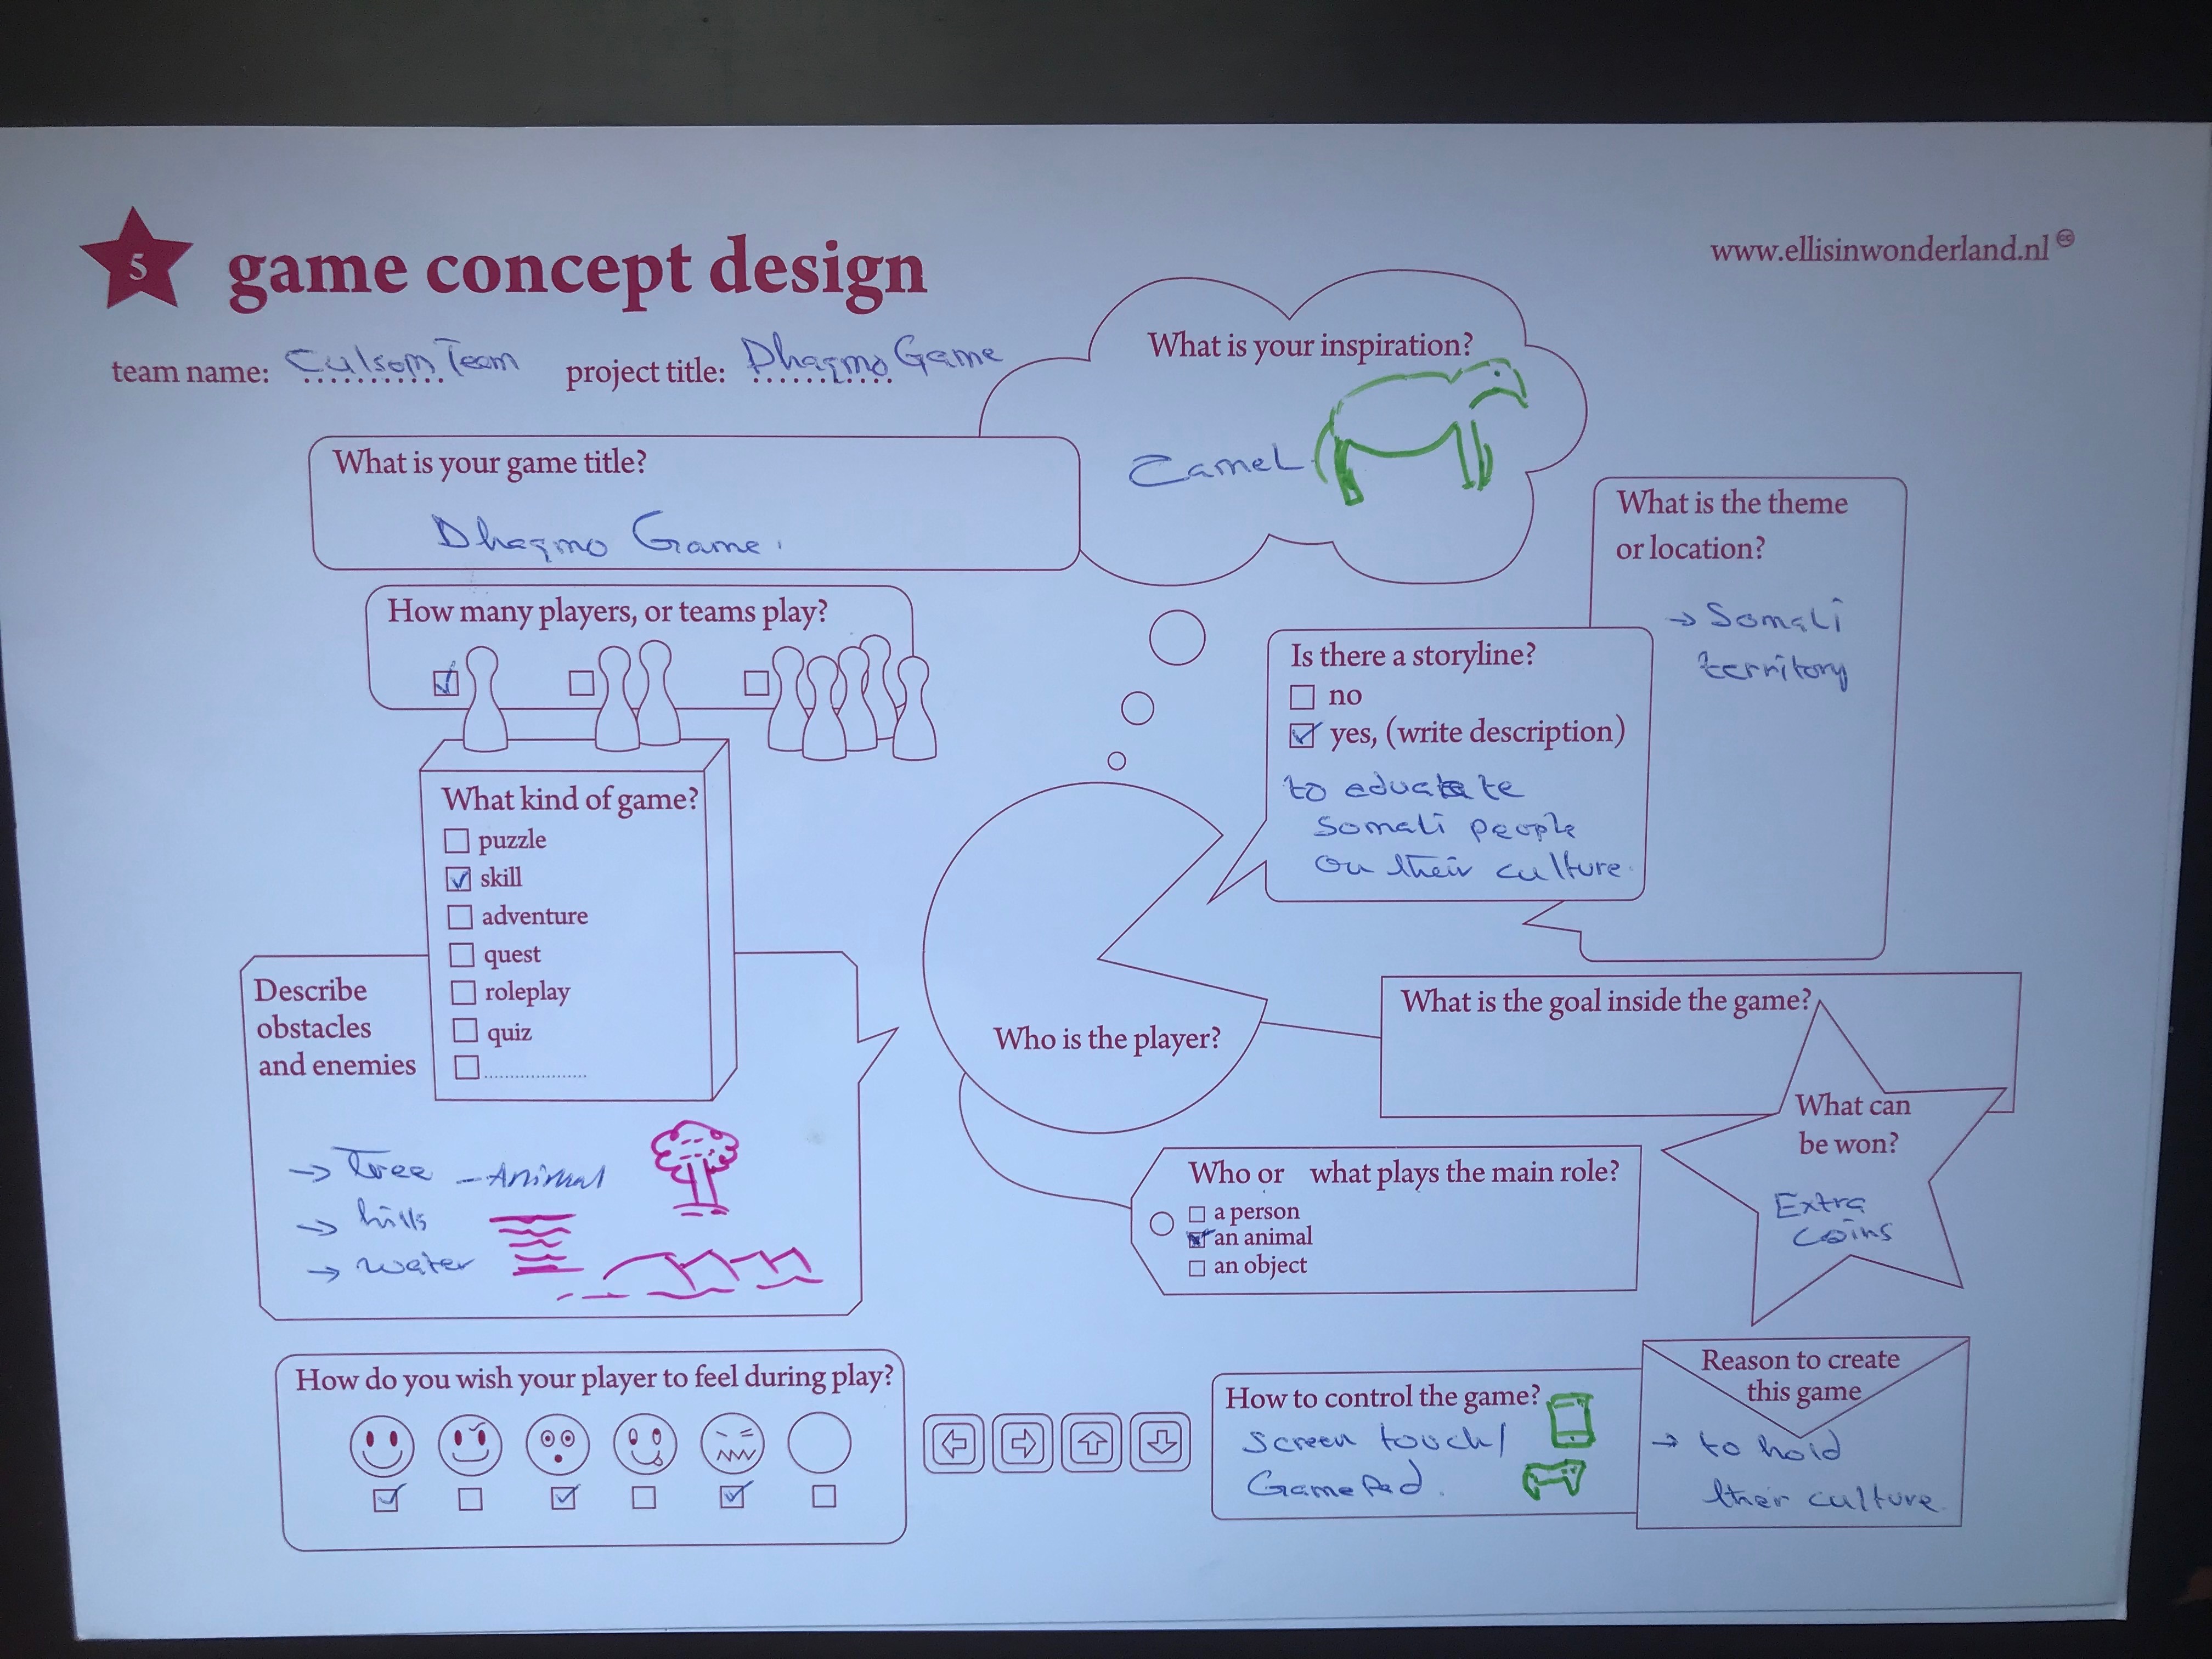 5
game concept design
www.ellisinwonderland.nl
cc
team name: Culsom Team
project title: Dhaqmo Game
What is your inspiration?
Camel
What is your game title?
Dhaqmo Game.
What is the theme
or location?
→ Somali
territory
How many players, or teams play?
Is there a storyline?
no
yes, (write description)
to educate
Somali people
on their culture.
What kind of game?
puzzle
skill
adventure
quest
roleplay
quiz
Describe
obstacles
and enemies
→ Tree - Animal
→ hills
→ water
Who is the player?
What is the goal inside the game?
What can
be won?
Extra
coins
Who or what plays the main role?
a person
an animal
an object
How do you wish your player to feel during play?
How to control the game?
Screen touch/
GamePad.
Reason to create
this game
→ to hold
their culture.